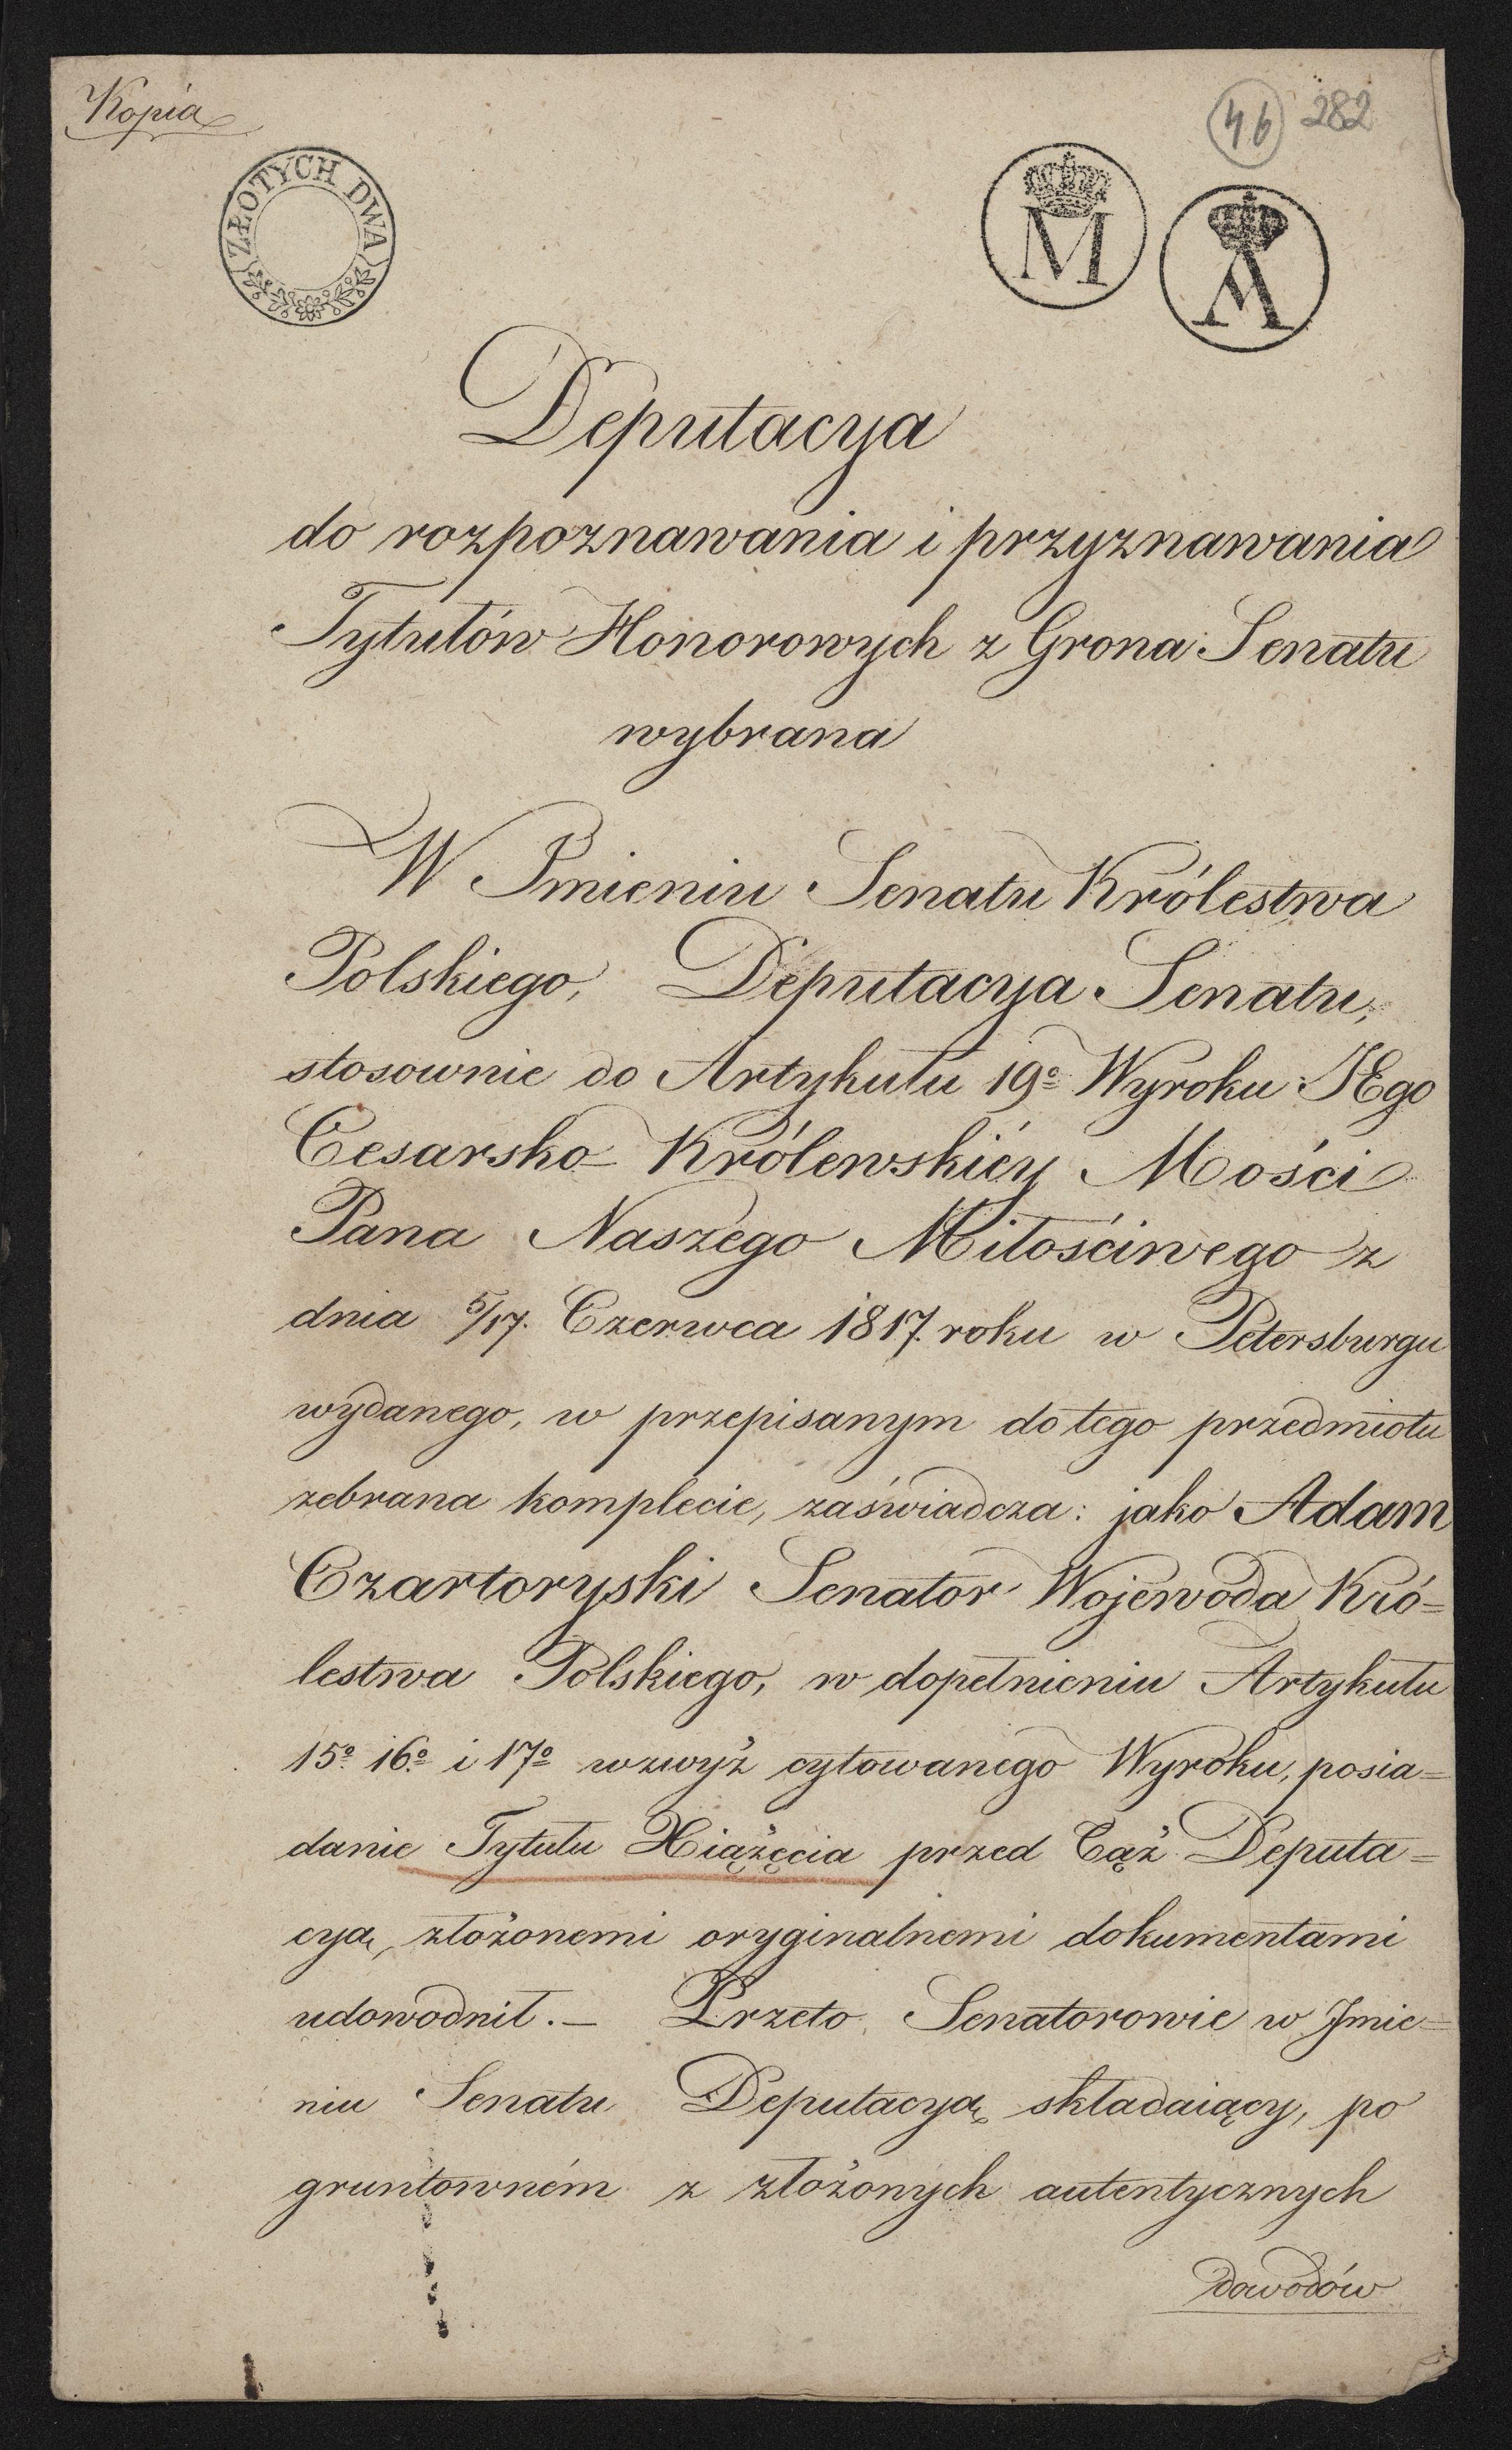 Kopia
46 282
ZŁOTYCH DWA
M
A
Deputacya
do rozpoznawania i przyznawania
Tytułów Honorowych z Grona Senatu
wybrana
W Imieniu Senatu Królestwa
Polskiego, Deputacya Senatu,
stosownie do Artykułu 19º Wyroku JEgo
Cesarsko-Królewskiéy Mości
Pana Naszego Miłościwego z
dnia 5/17. Czerwca 1817. roku w Petersburgu
wydanego, w przepisanym do tego przedmiotu
zebrana komplecie, zaświadcza: jako Adam
Czartoryski Senator Wojewoda Kró=
lestwa Polskiego, w dopełnieniu Artykułu
15º 16º i 17º wzwyż cytowanego Wyroku, posia=
danie Tytułu Xiążęcia przed Tąż Deputa=
cyą, złożonemi oryginalnemi dokumentami
udowodnił.— Przeto Senatorowie w Jmie=
niu Senatu Deputacyą składaiący, po
gruntowném z złożonych autentycznych
dowodów